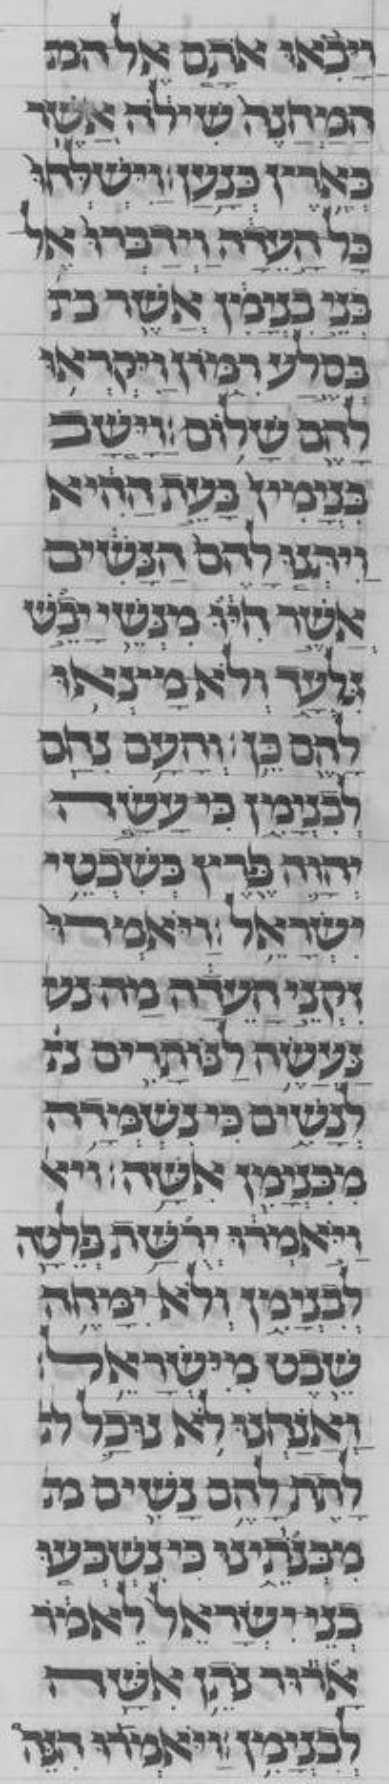 וַיָּבִ֨אוּ אֹתָ֤ם אֶל הַמ
הַמַּֽחֲנֶה֙ שִׁילֹ֔ה אֲשֶׁ֖ר
בְּאֶ֥רֶץ כְּנָֽעַן׃ וַֽיִּשְׁלְחוּ֙
כָּל הָ֣עֵדָ֔ה וַֽיְדַבְּרוּ֙ אֶל
בְּנֵ֣י בִנְיָמִ֔ן אֲשֶׁ֖ר בס
בְּסֶ֣לַע רִמּ֑וֹן וַיִּקְרְא֥וּ
לָהֶ֖ם שָׁלֽוֹם׃ וַיָּ֤שָׁב
בִּנְיָמִין֙ בָּעֵ֣ת הַהִ֔יא
וַיִּתְּנ֤וּ לָהֶם֙ הַנָּשִׁ֔ים
אֲשֶׁ֣ר חִיּ֔וּ מִנְּשֵׁ֖י יָבֵ֣שׁ
גִּלְעָ֑ד וְלֹֽא מָצְא֥וּ
לָהֶ֖ם כֵּֽן׃ וְהָעָ֥ם נִחָ֖ם
לְבִנְיָמִ֑ן כִּֽי עָשָׂ֧ה
יְהוָ֛ה פֶּ֖רֶץ בְּשִׁבְטֵ֥י
יִשְׂרָאֵֽל׃ וַיֹּֽאמְרוּ֙
זִקְנֵ֣י הָעֵדָ֔ה מַה נע
נַּעֲשֶׂ֥ה לַנּוֹתָרִ֖ים לנ
לְנָשִׁ֑ים כִּֽי נִשְׁמְדָ֥ה
מִבִּנְיָמִ֖ן אִשָּֽׁה׃ ויא
וַיֹּ֣אמְר֔וּ יְרֻשַּׁ֥ת פְּלֵיטָ֖ה
לְבִנְיָמִ֑ן וְלֹֽא יִמָּחֶ֥ה
שֵׁ֖בֶט מִיִּשְׂרָאֵֽל׃
וַאֲנַ֗חְנוּ לֹ֥א נוּכַ֛ל ל
לָתֵת לָהֶ֥ם נָשִׁ֖ים מ
מִבְּנוֹתֵ֑ינוּ כִּֽי נִשְׁבְּע֤וּ
בְנֵֽי יִשְׂרָאֵל֙ לֵאמֹ֔ר
אָר֕וּר נֹתֵ֥ן אִשָּׁ֖ה
לְבִנְיָמִֽן׃ וַיֹּאמְר֡וּ הִנֵּה֩